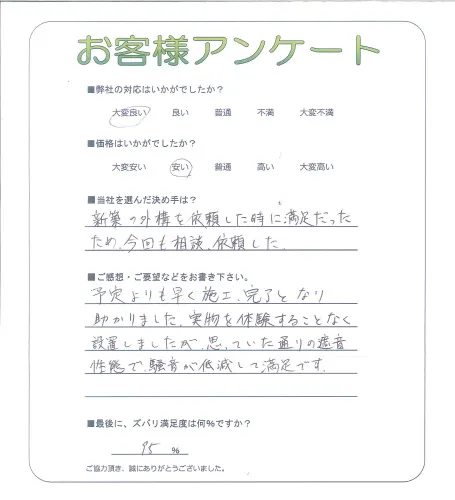 お客様アンケート
■弊社の対応はいかがでしたか？
大変良い 良い 普通 不満 大変不満
■価格はいかがでしたか？
大変安い 安い 普通 高い 大変高い
■当社を選んだ決め手は？
新築の外構を依頼した時に満足だった
ため、今回も相談、依頼した。
■ご感想・ご要望などをお書き下さい。
予定よりも早く施工、完了となり
助かりました。実物を体験することなく
設置しましたが、思っていた通りの遮音
性能で、騒音が低減して満足です。
■最後に、ズバリ満足度は何％ですか？
95 ％
ご協力頂き、誠にありがとうございました。